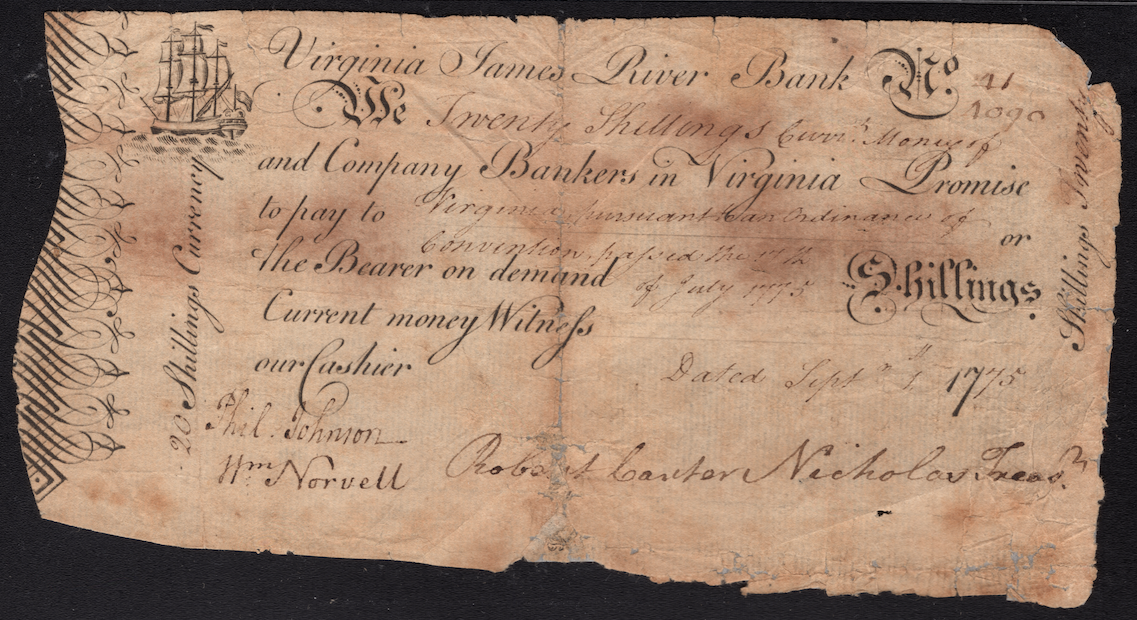 Virginia James River Bank No. 41
1090
We Twenty Shillings Currt. Money of
and Company Bankers in Virginia Promise
to pay to Virginia, pursuant to an Ordinance of
or
Convention, passed the 17th
the Bearer on demand of July 1775 Shillings
Current money Witness
our Cashier
Dated Sept 1 1775
Phil. Johnson
Wm Norvell
Robert Carter Nicholas Treasr.
20 Shillings Currency
Shillings Twenty